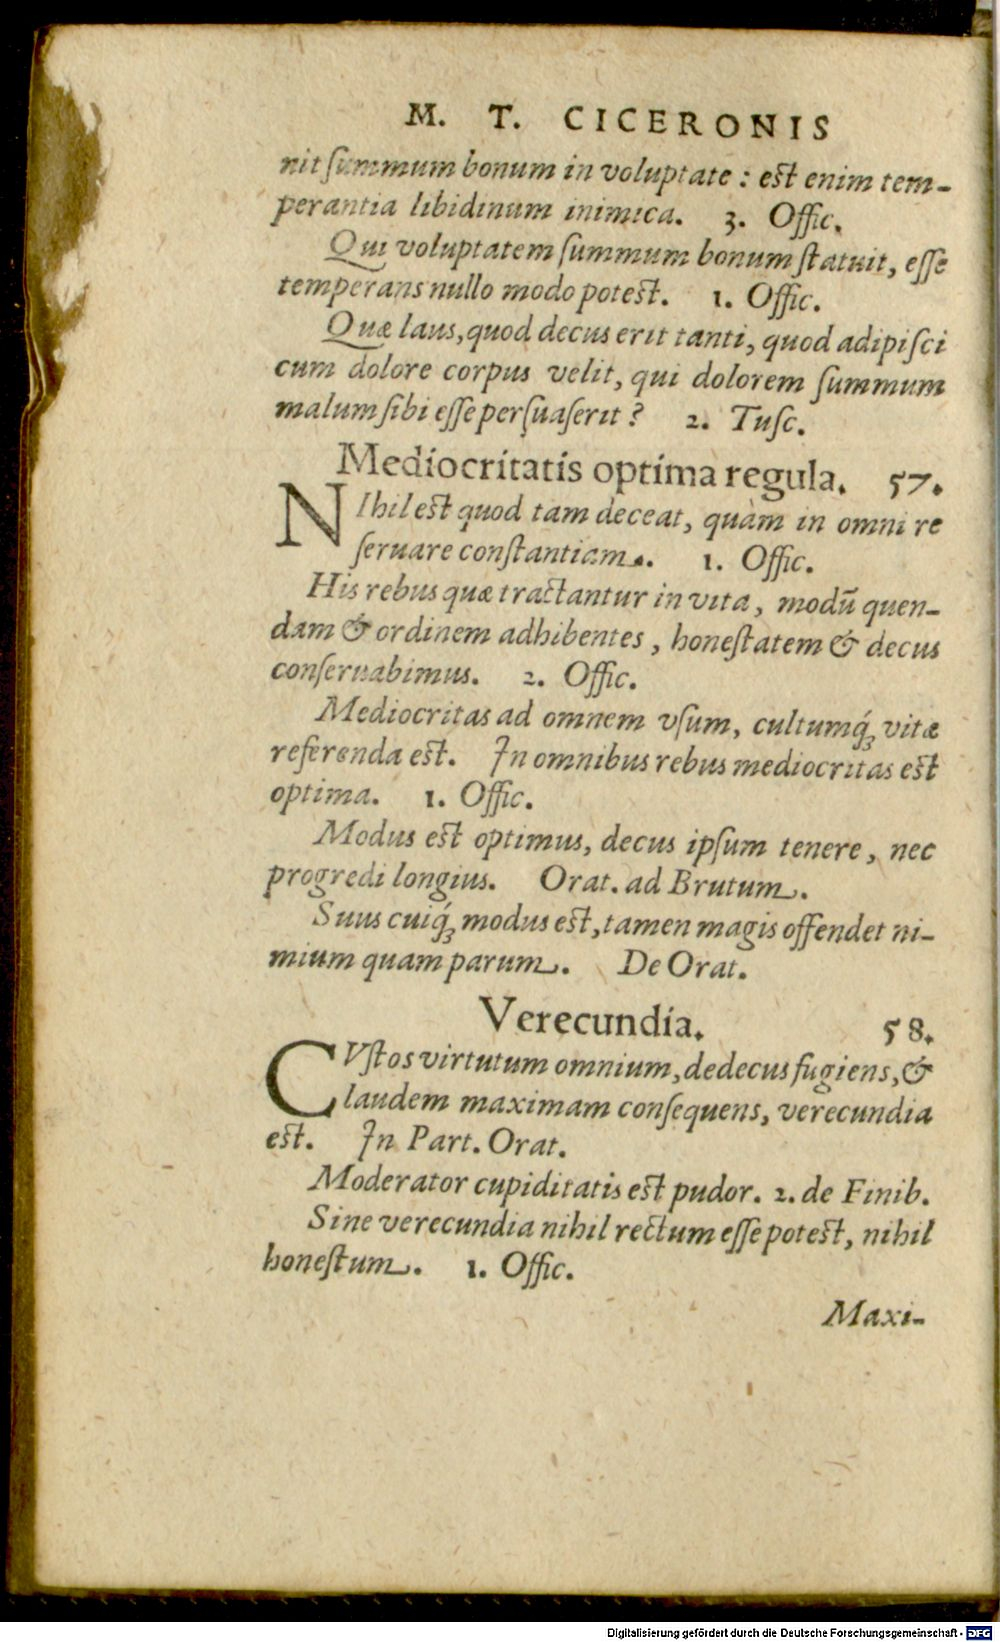 M. T. CICERONIS
nit ſummum bonum in voluptate : est enim tem-
perantia libidinum inimica. 3. Offic.
Qui voluptatem ſummum bonum ſtatuit, eſſe
temperans nullo modo potest. 1. Offic.
Quæ laus, quod decus erit tanti, quod adipiſci
cum dolore corpus velit, qui dolorem ſummum
malum ſibi eſſe perſuaſerit ? 2. Tuſc.
Mediocritatis optima regula. 57.
NIhil est quod tam deceat, quàm in omni re
ſeruare conſtantiam. 1. Offic.
His rebus quæ tractantur in vita, modū quen-
dam & ordinem adhibentes, honeſtatem & decus
conſeruabimus. 2. Offic.
Mediocritas ad omnem vſum, cultumq́ꝫ vitæ
referenda est. In omnibus rebus mediocritas est
optima. 1. Offic.
Modus est optimus, decus ipſum tenere, nec
progredi longius. Orat. ad Brutum.
Suus cuiq́ꝫ modus est, tamen magis offendet ni-
mium quam parum. De Orat.
Verecundia. 58.
CVſtos virtutum omnium, dedecus fugiens, &
laudem maximam conſequens, verecundia
est. In Part. Orat.
Moderator cupiditatis est pudor. 2. de Finib.
Sine verecundia nihil rectum eſſe potest, nihil
honeſtum. 1. Offic.
Maxi-
Digitalisierung gefördert durch die Deutsche Forschungsgemeinschaft - DFG